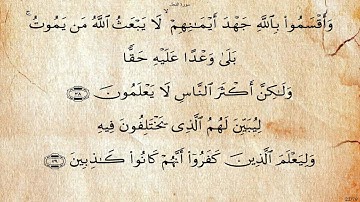 سورة النحل
وَأَقۡسَمُواْ بِٱللَّهِ جَهۡدَ أَيۡمَـٰنِهِمۡ ۙ لَا يَبۡعَثُ ٱللَّهُ مَن يَمُوتُ ۚ
بَلَىٰ وَعۡدًا عَلَيۡهِ حَقًّا
وَلَـٰكِنَّ أَڪۡثَرَ ٱلنَّاسِ لَا يَعۡلَمُونَ ﴿٣٨﴾
لِيُبَيِّنَ لَهُمُ ٱلَّذِى يَخۡتَلِفُونَ فِيهِ
وَلِيَعۡلَمَ ٱلَّذِينَ كَفَرُوٓاْ أَنَّہُمۡ كَانُواْ كَـٰذِبِينَ ﴿٣٩﴾